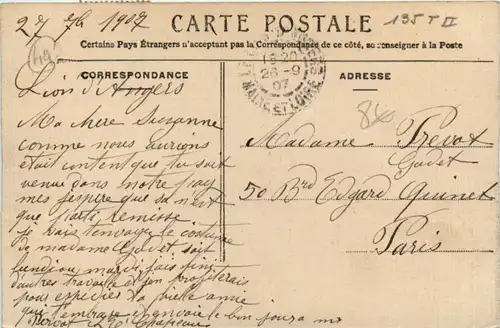 27 7b 1907
CARTE POSTALE
135 T II
49
Certains Pays Étrangers n'acceptant pas la Correspondance de ce côté, se renseigner à la Poste
CORRESPONDANCE
ADRESSE
26-9
07
MAINE ET LOIRE
Lion d'Angers
Ma chere Suzanne
comme nous aurions
était content que tu soit
venue dans notre pays
mes j'espère que sa n'est
que parti remisse
je vais t'envoyer le costume
de madame Godet soit
lundi ou mardi jais fini
d'autres travaille et j'en profiterais
pour expedier ta vieille amie
qui t'embrasse et envoie le bon jour a
Madame Prevot
Godet
50 Brd Edgard Quinet
Paris